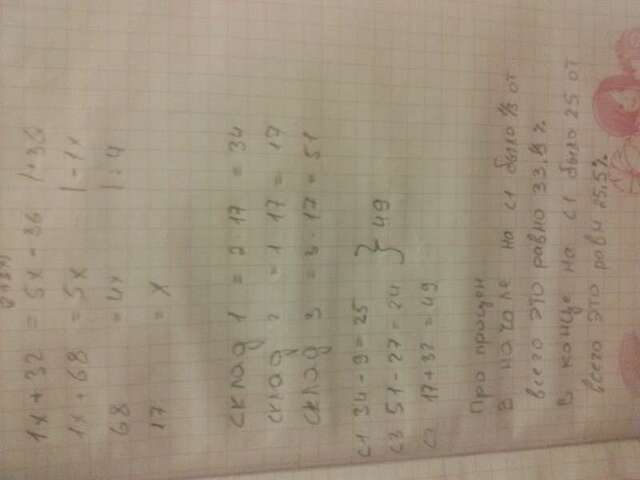 1x + 32 = 5x - 36 | +36
1x + 68 = 5x | -1x
68 = 4x | :4
17 = x
склад 1 = 2 17 = 34
склад 2 = 1 17 = 17
склад 3 = 3 · 17 = 51
с1 34 - 9 = 25
с3 51 - 27 = 24 } 49
17 + 32 = 49
Про процен
В начале на с1 было от
всего это равно %
В конце на с1 было 25 от
всего это равн 25,5%